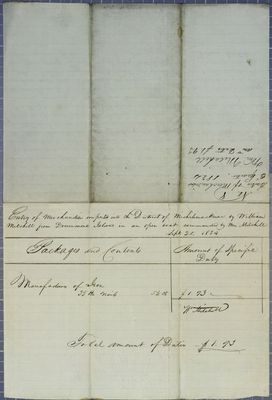 No. 1
Entry of Merchandise
3 Quarter 1824
Wm Mitchell
am't Duties $1.93
Entry of Merchandise imported into the District of Michilimackinac by William
Mitchell from Drummond Island in an open boat commanded by Wm Mitchell
Sept 21. 1824
Packages and Contents
Amount of Specific
Duty
Manufactures of Iron
$1.93
W Mitchell
Total amount of Duties $1.93